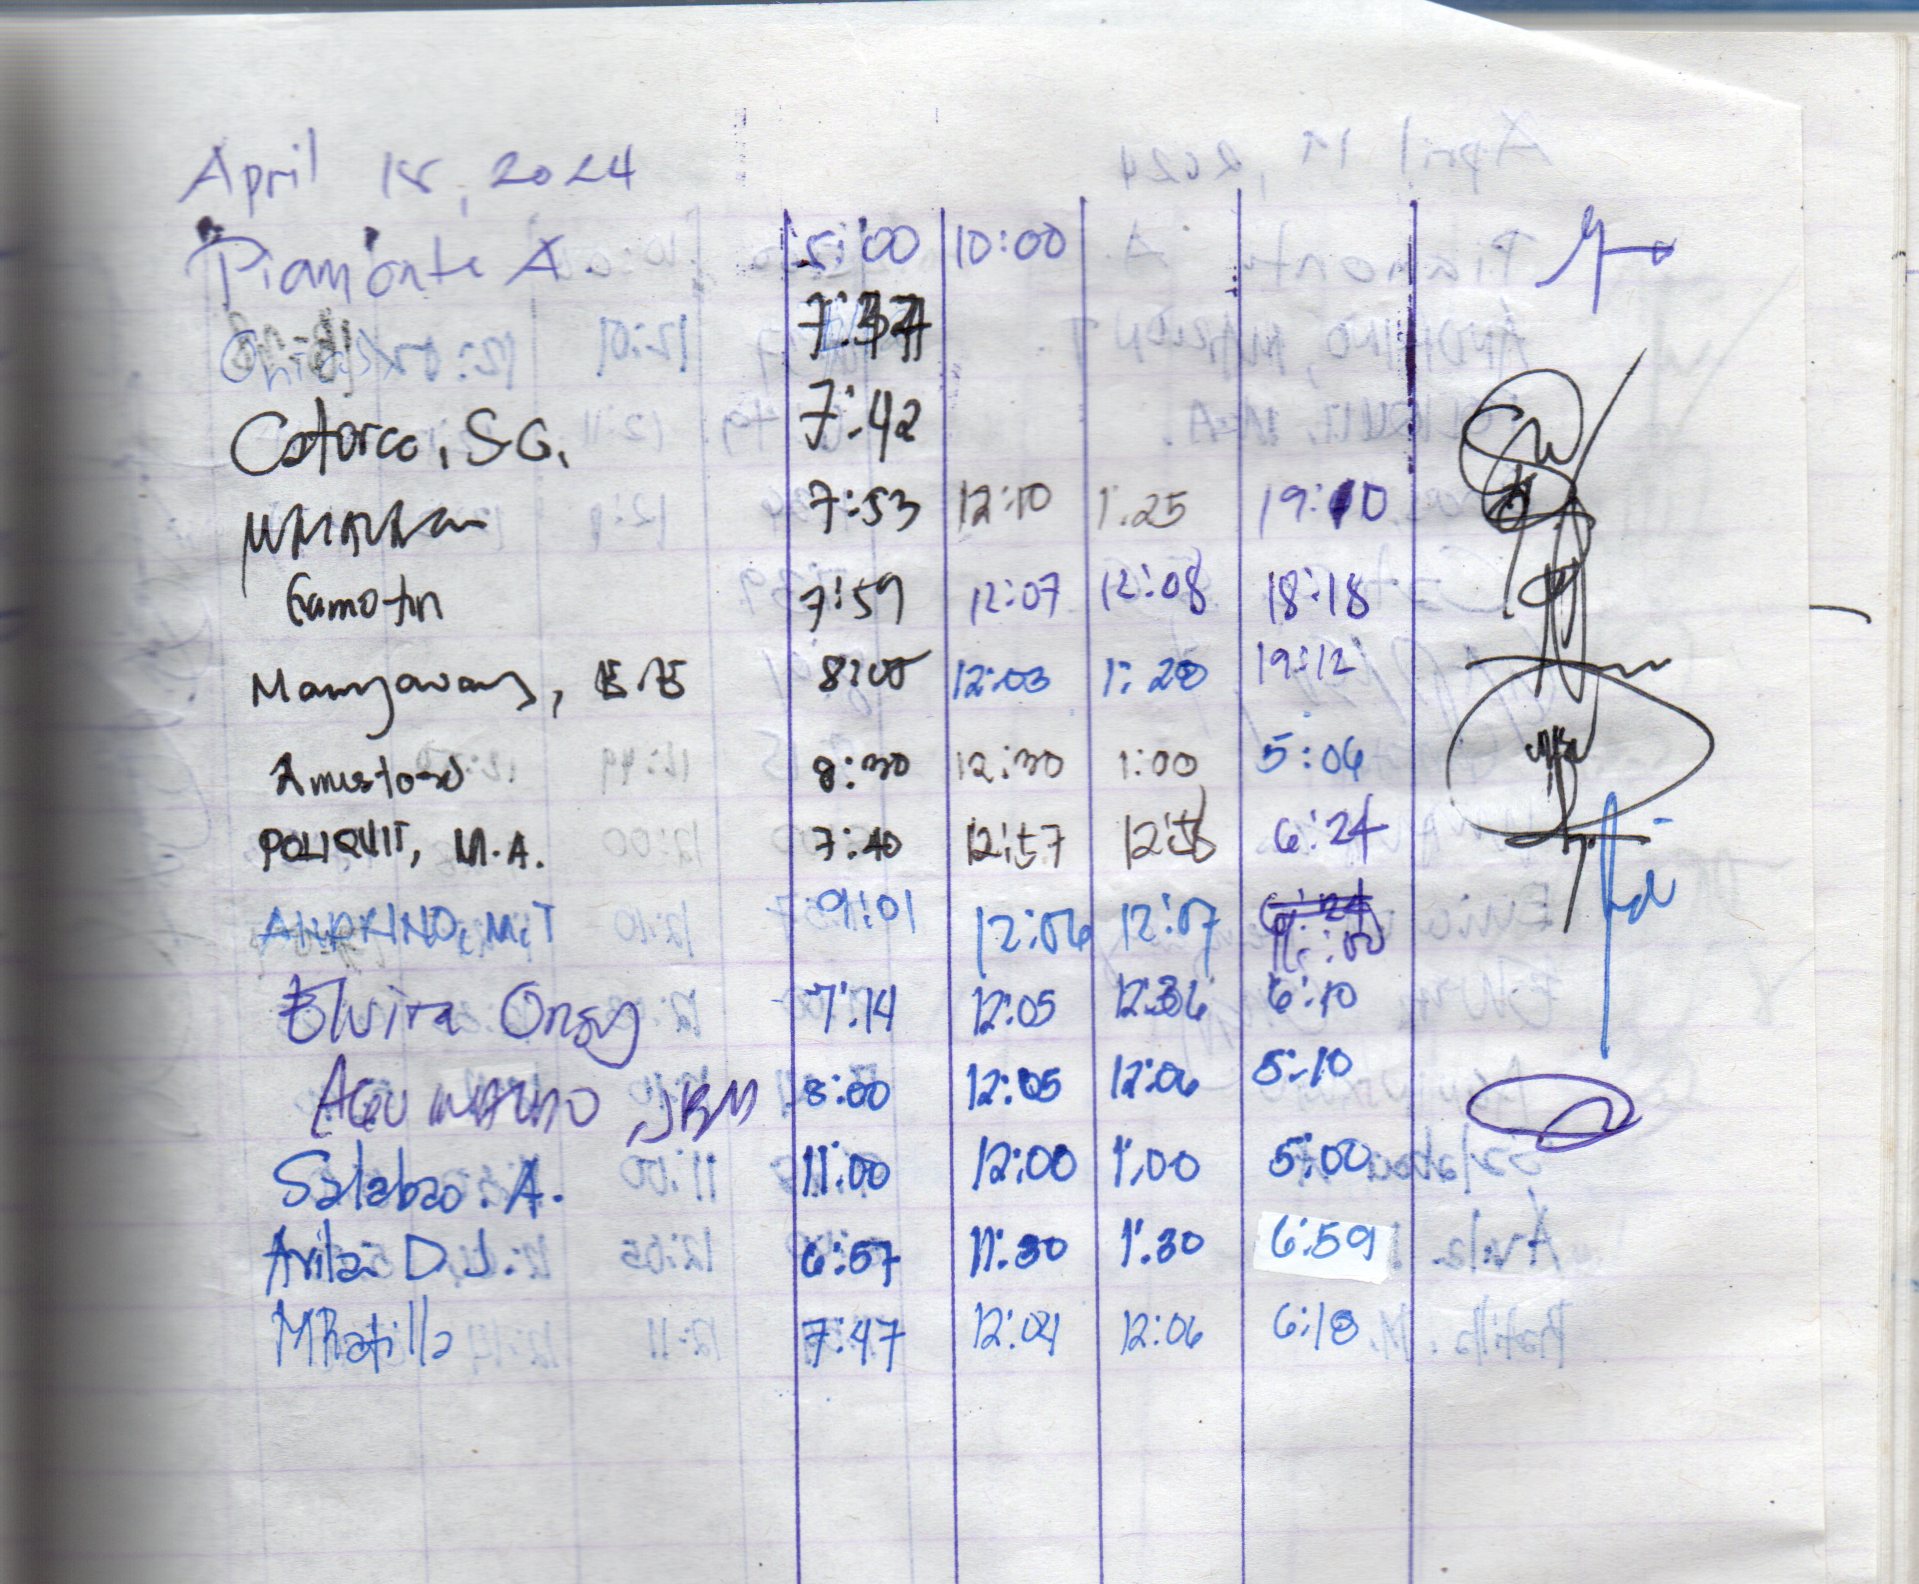 April 18, 2024
Piamonte A. 5:00 10:00
Catorce, SG. 7:42
7:53 12:10 1:25 19:10
Gamotin 7:59 12:07 12:08 18:18
8:00 12:03 1:20 19:12
8:30 12:30 1:00 5:06
POLIQUIT, M.A. 7:40 12:57 12:58 6:24
ANDHINO, M.T 9:01 12:06 12:07
Elvira Ongy 7:14 12:05 12:36 6:10
8:00 12:05 12:06 5:10
Salabao. A. 11:00 12:00 1:00 5:00
Avila D.J. 6:57 11:30 1:30 6:59
MRatilla 7:47 12:04 12:06 6:18